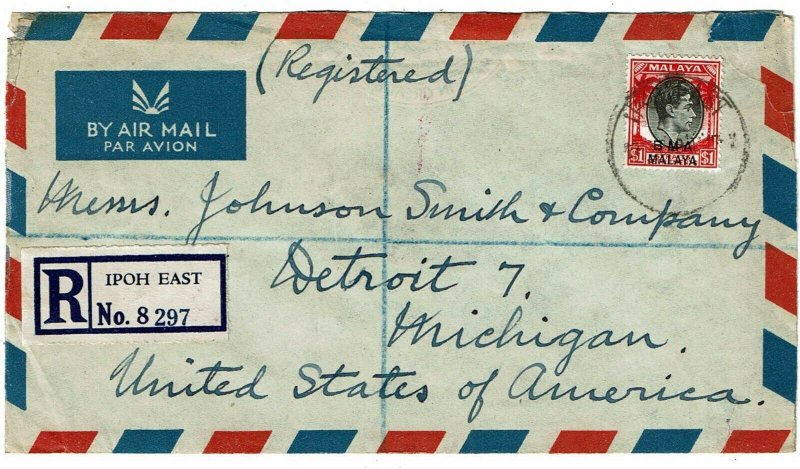 (Registered)
BY AIR MAIL
PAR AVION
MALAYA
BMA
MALAYA
$1
$1
Messrs. Johnson Smith & Company
Detroit 7,
Michigan.
United States of America.
R
IPOH EAST
No. 8297